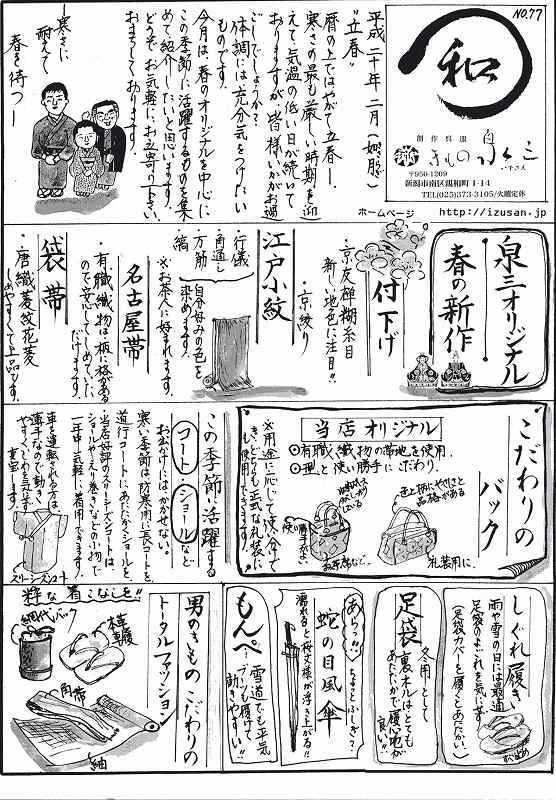 NO.77
和
創作呉服
きもの 泉三
いずさん
〒950-1209
新潟市南区親和町1-14
TEL(025)373-3105/火曜定休
ホームページ http://izusan.jp
平成二十年二月(如月)
"立春"
暦の上ではやがて立春…
寒さの最も厳しい時期を迎
えて気温の低い日が続いて
おりますが皆様いかがお過
ごしでしょうか?
体調には充分気をつけたい
ものです。
今月は、春のオリジナルを中心に
この季節に活躍するものを集
めて紹介したいと思います。
どうぞお気軽にお立寄り下さい。
おまちしております。
寒さに
耐えて
春を待つ…
泉三オリジナル
春の新作
付下げ
・京友禅糊糸目
新しい地色に注目!!
・京絞り
江戸小紋
・行儀
・角通し
・万筋
縞
自分好みの色を
染めます。
※お茶人に好まれます。
名古屋帯
・有職織物は柄に格がある
ので安心してしめていた
だけます。
袋帯
・唐織菱紋花菱
しめやすくて上品です。
こだわりの
バック
当店オリジナル
◎有職織物の帯地を使用。
◎型と使い勝手にこだわり。
※用途に応じて使い分けで
きどちらも正式な礼装に
も使用できます。
品格がある
礼装用に。
使い
勝手がよい
お茶席など。
この季節活躍する
コート・ショールなど
お出かけにはかかせない。
寒い季節は防寒用に長コートを
道行コートにあたたかショールを。
・当店好評のスリーシーズンコートは、
ショールやえり巻きなどの小物で
一年中、気軽に着用できます。
車を運転される方は、
薄手なので動き
やすくごわごわせず
重宝します。
スリーシーズンコート
しぐれ履き
雨や雪の日には最適
足袋のよごれを気にせず
(足袋カバーを履くとあたたかい。)
すべり止め
足袋
冬用として
裏ネルはとても
あたたかで履心地が
良い!!
あらっ!!
ちょっとふしぎ?
蛇の目風傘
濡れると桜文様が浮き上がる!!
もんぺ
雪道でも平気
…ブーツも履けて
動きやすい!!
粋な着こなしを!!
男のきもの こだわりの
トータルファッション
網代バック
本革
草履
角帯
紬